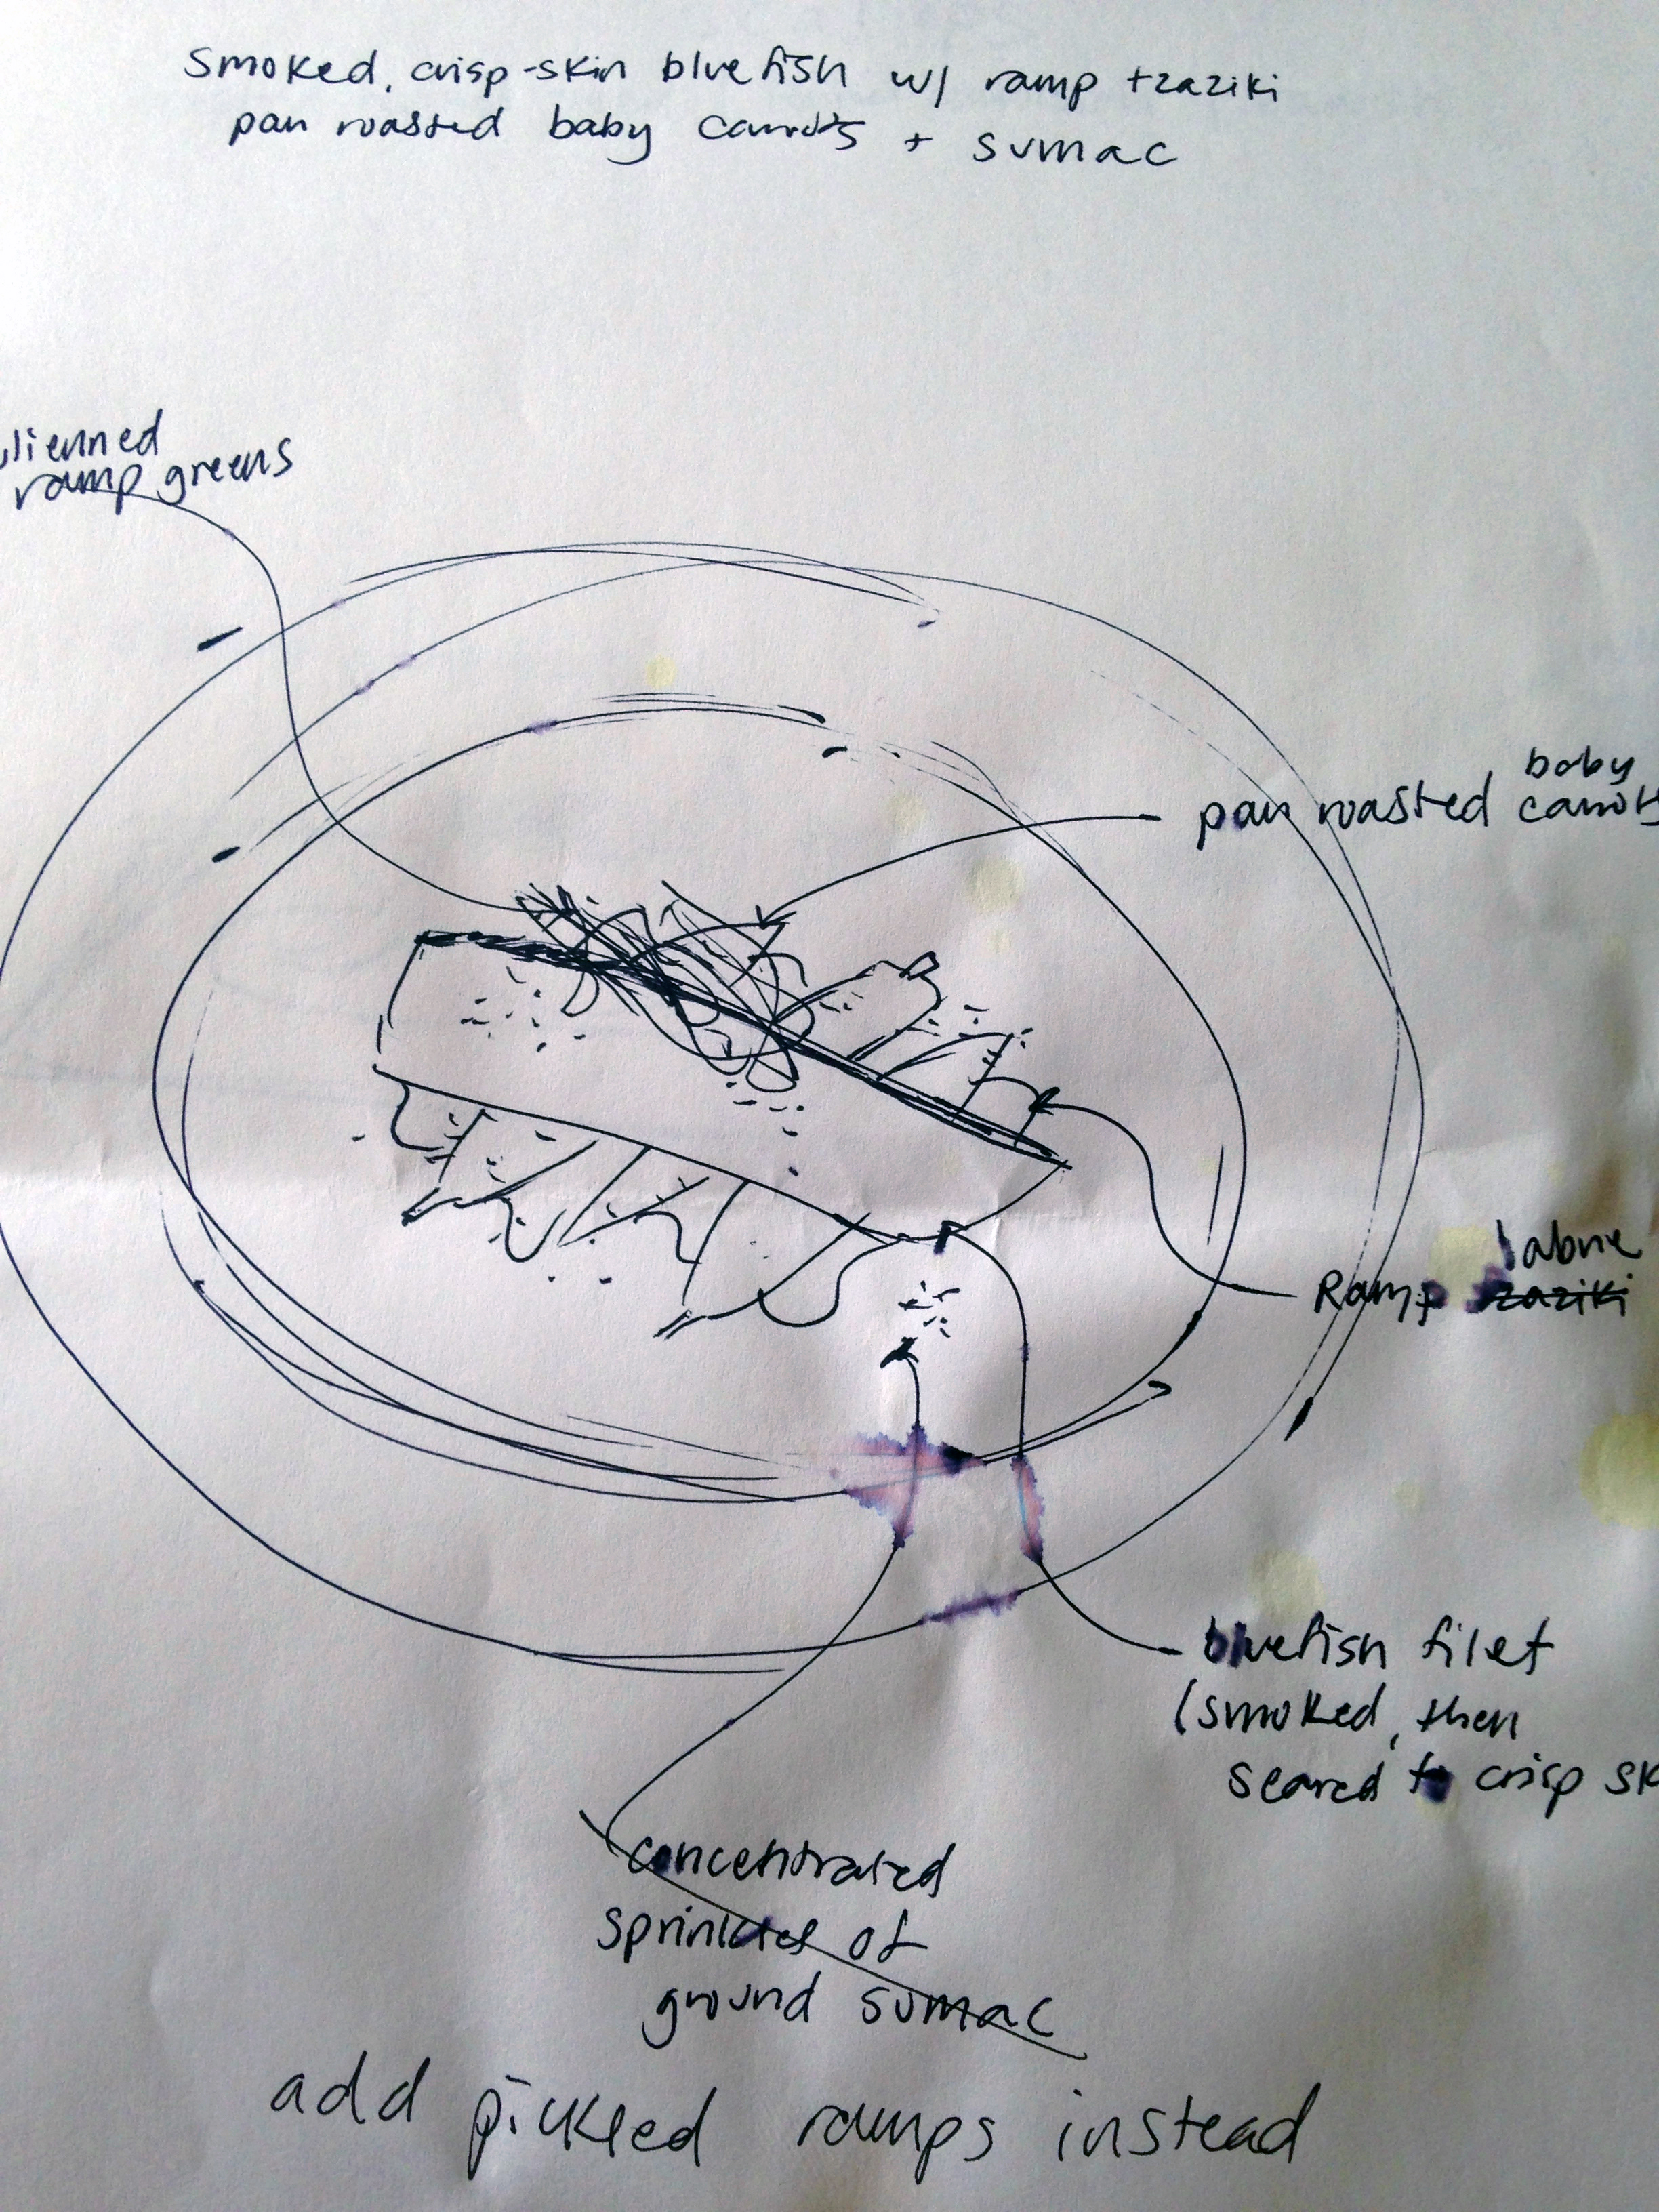 Smoked, crisp-skin bluefish w/ ramp tzaziki
pan roasted baby carrots + sumac
lienned
ramp greens
baby
pan roasted carrots
labne
Ramp tzaziki
bluefish filet
(smoked, then
seared to crisp sk
concentrated
sprinkles of
ground sumac
add pickled ramps instead